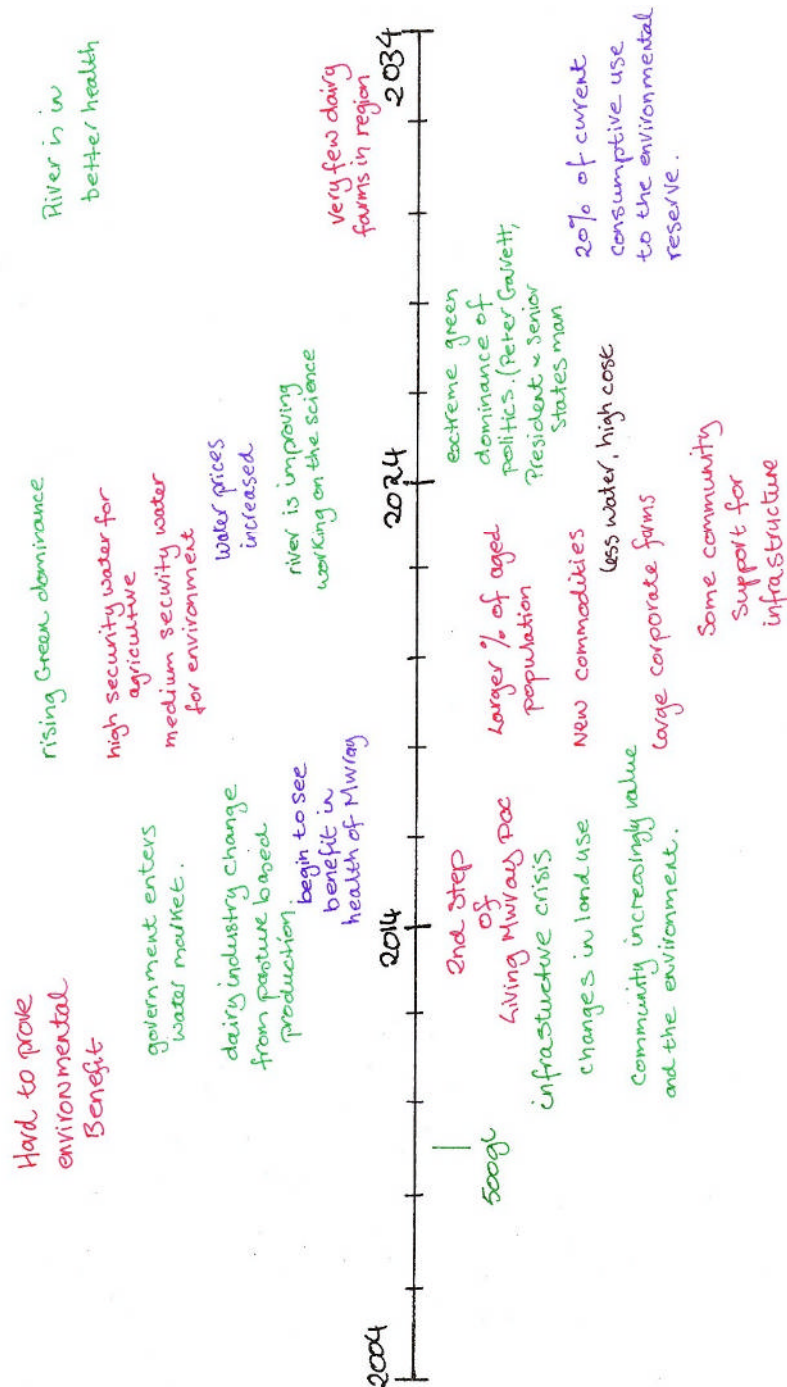 Hard to prove
environmental
Benefit
government enters
water market.
dairy industry change
from pasture based
production.
begin to see
benefit in
health of Murray
rising Green dominance
high security water for
agriculture
medium security water
for environment
water prices
increased
river is improving
working on the science
River is in
better health
very few dairy
farms in region
2004
2014
2024
2034
500gL
2nd Step
of
Living Murray Doc
infrastucture crisis
changes in land use
community increasingly value
and the environment.
Larger % of aged
population
New commodities
Large corporate farms
less water, high cost
Some community
support for
infrastructure
extreme green
dominance of
politics. (Peter Garrett,
President & Senior
States man
20% of current
consumptive use
to the environmental
reserve.